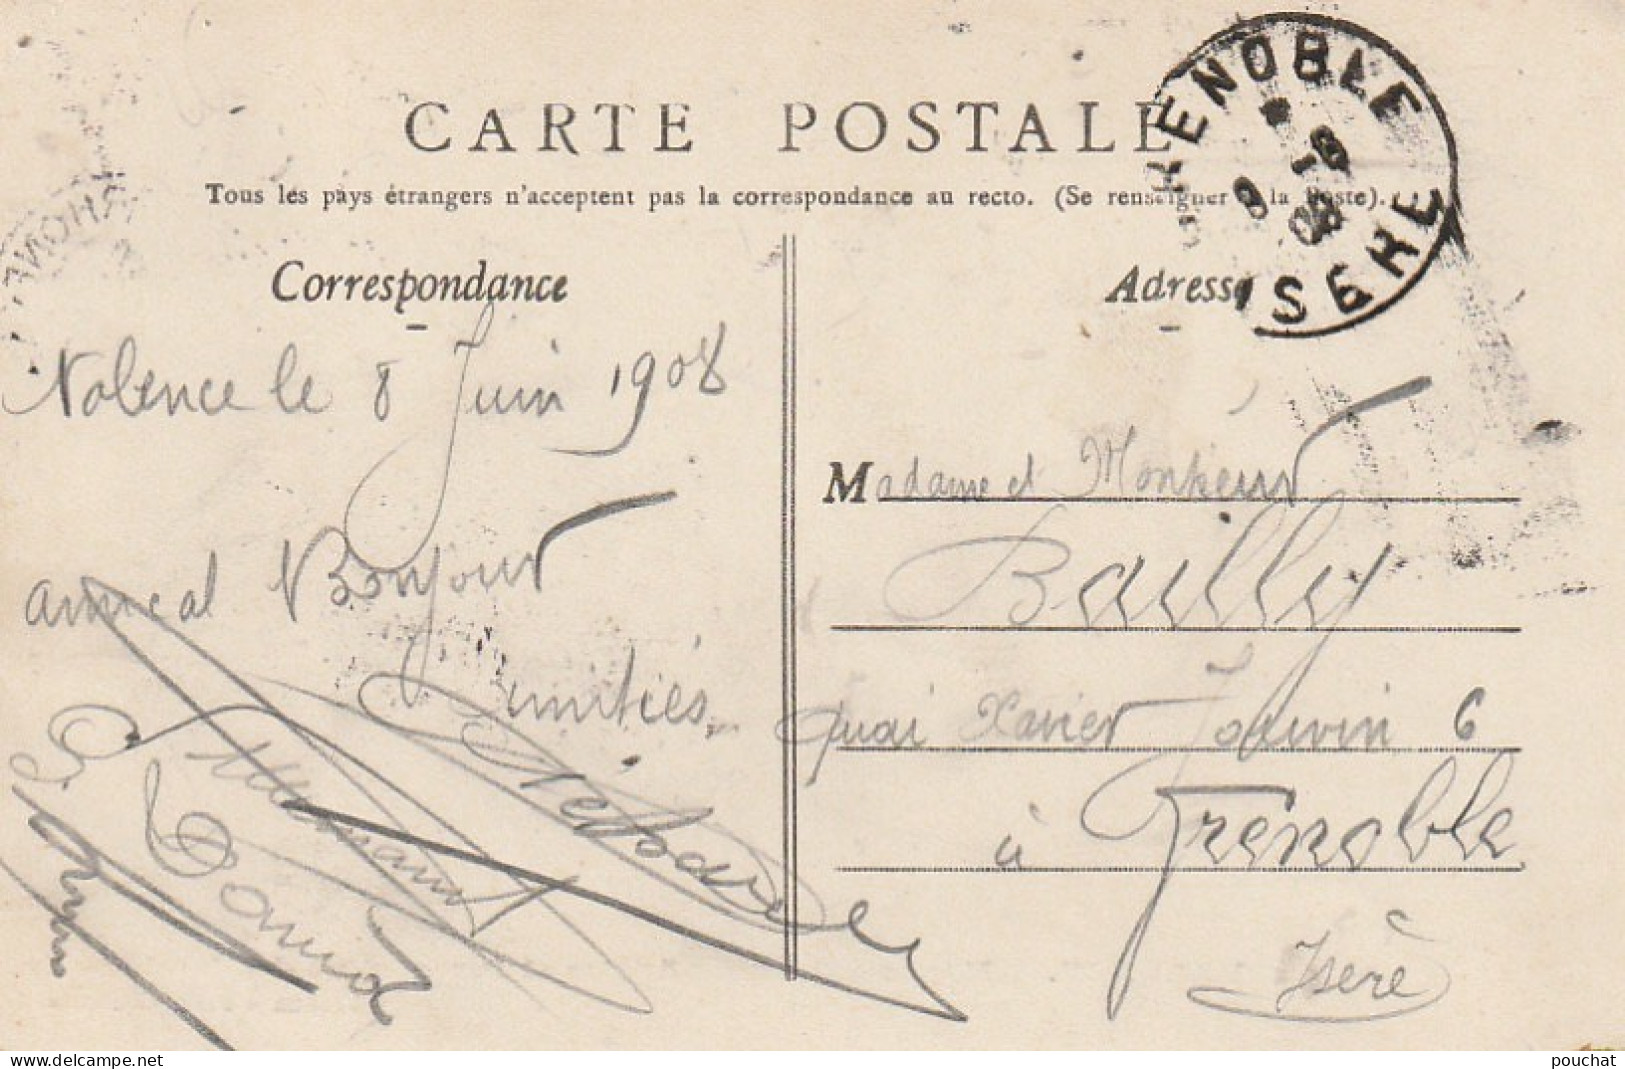 CARTE POSTALE
Tous les pays étrangers n'acceptent pas la correspondance au recto. (Se renseigner à la Poste).
GRENOBLE
8 - 6
08
ISERE
Correspondance
Adresse
Valence le 8 Juin 1908
amical Bonjour
Amitiés
Madame et Monsieur
Bailly
Quai Xavier Jouvin 6
à Grenoble
Isère
www.delcampe.net
pouchat